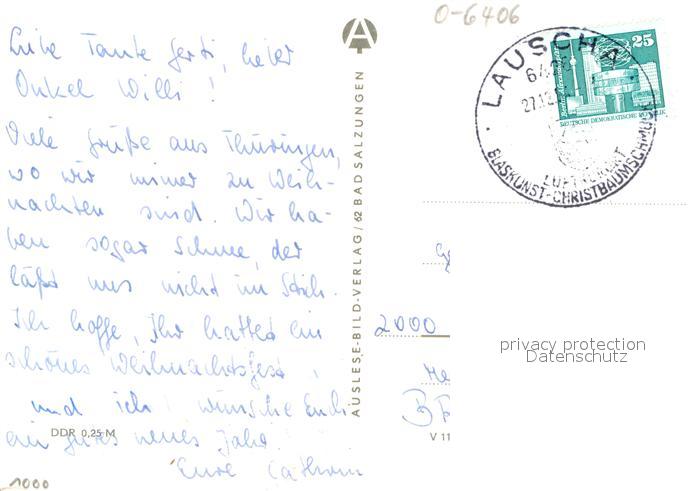 Liebe Tante Gerti, lieber
Onkel Willi!
Viele Grüße aus Thüringen,
wo wir immer zu Weih-
nachten sind. Wir ha-
ben sogar Schnee, der
läßt uns nicht im Stich.
Ich hoffe, Ihr hattet ein
schönes Weihnachtsfest,
und ich wünsche Euch
ein gutes neues Jahr.
Eure Cathrin
DDR 0,25 M
1000
AUSLESE-BILD-VERLAG/62 BAD SALZUNGEN
O-6406
LAUSCHA
642
27.12.
LUFTKURORT
GLASKUNST-CHRISTBAUMSCHMUCK
25
DEUTSCHE DEMOKRATISCHE REPUBLIK
2000
V 11
privacy protection
Datenschutz